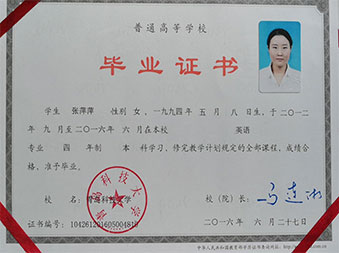 普通高等学校
毕业证书
学生 张萍萍 性别 女、一九九四年 五月 八日生，于二〇一二
年 九月至二〇一六年 六月在本校 英语
专业 四 年制 本 科学习，修完教学计划规定的全部课程，成绩合
格，准予毕业。
校 名： 校(院)长：
证书编号：104261201605004810 二〇一六年 六月二十七日